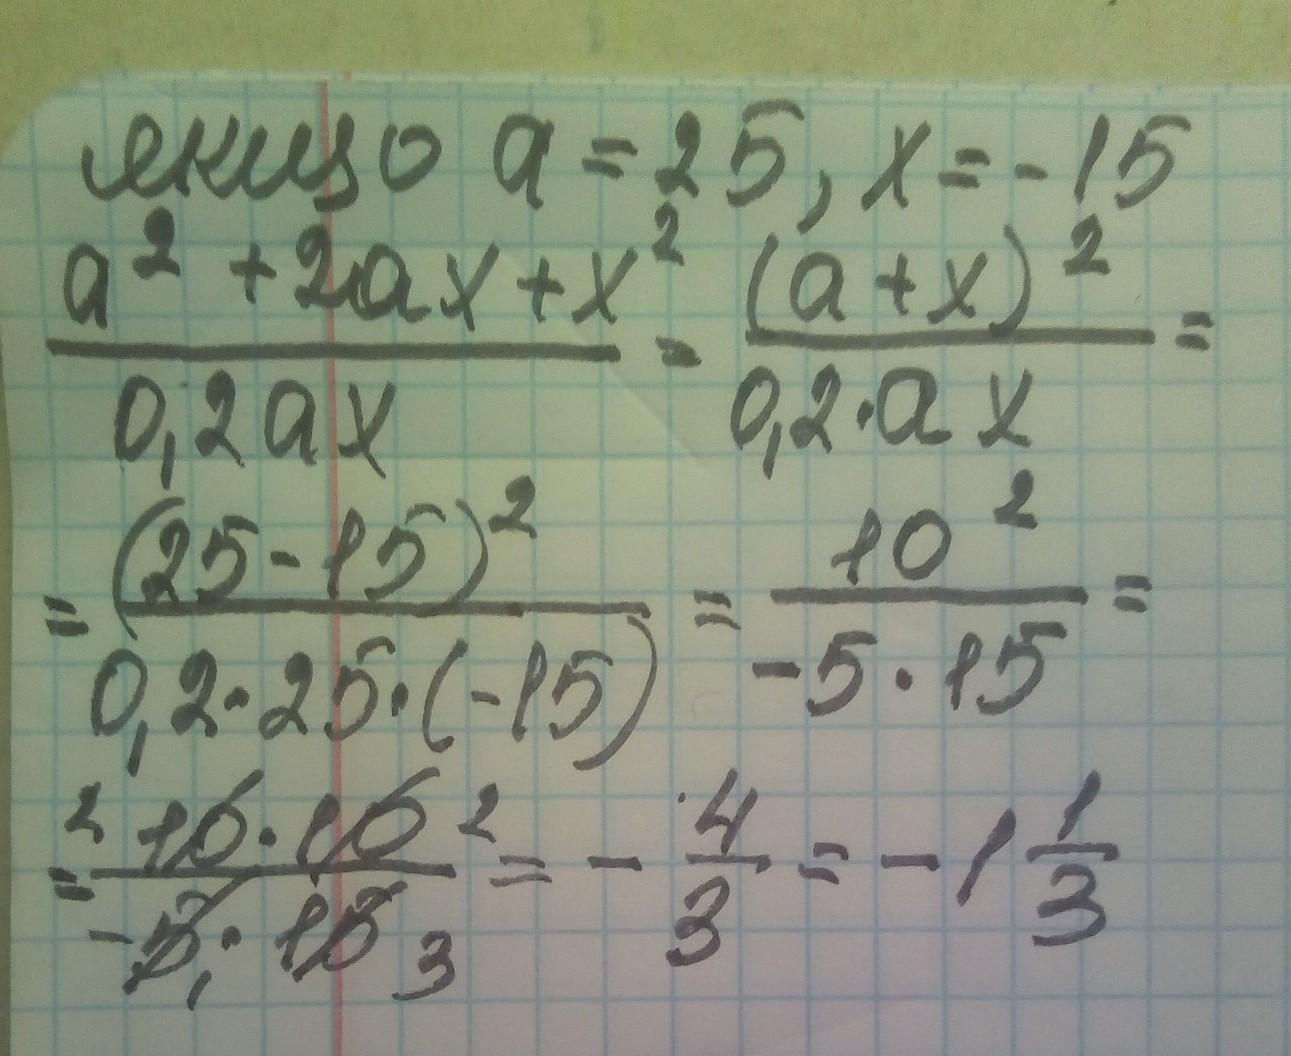 якщо a = 25, x = -15
\frac{a^2 + 2ax + x^2}{0,2ax} = \frac{(a + x)^2}{0,2 \cdot ax} =
= \frac{(25 - 15)^2}{0,2 \cdot 25 \cdot (-15)} = \frac{10^2}{-5 \cdot 15} =
= \frac{^2\cancel{10} \cdot \cancel{10}^2}{-\cancel{5}_1 \cdot \cancel{15}_3} = -\frac{4}{3} = -1\frac{1}{3}